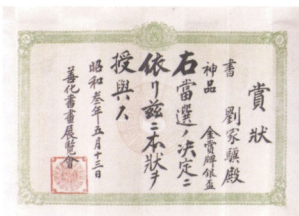 賞狀
書 劉家驥殿
神品 金賞牌銀盃
右當選ノ決定ニ
依リ茲ニ本狀ヲ
授與ス
昭和叁年五月十三日
善化書畫展覽會